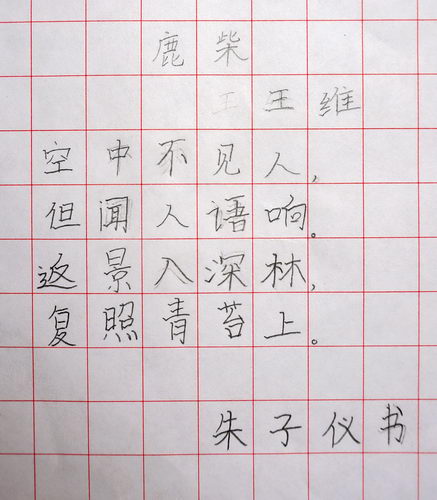 鹿柴
王王维
空中不见人,
但闻人语响。
返景入深林,
复照青苔上。
朱子仪书